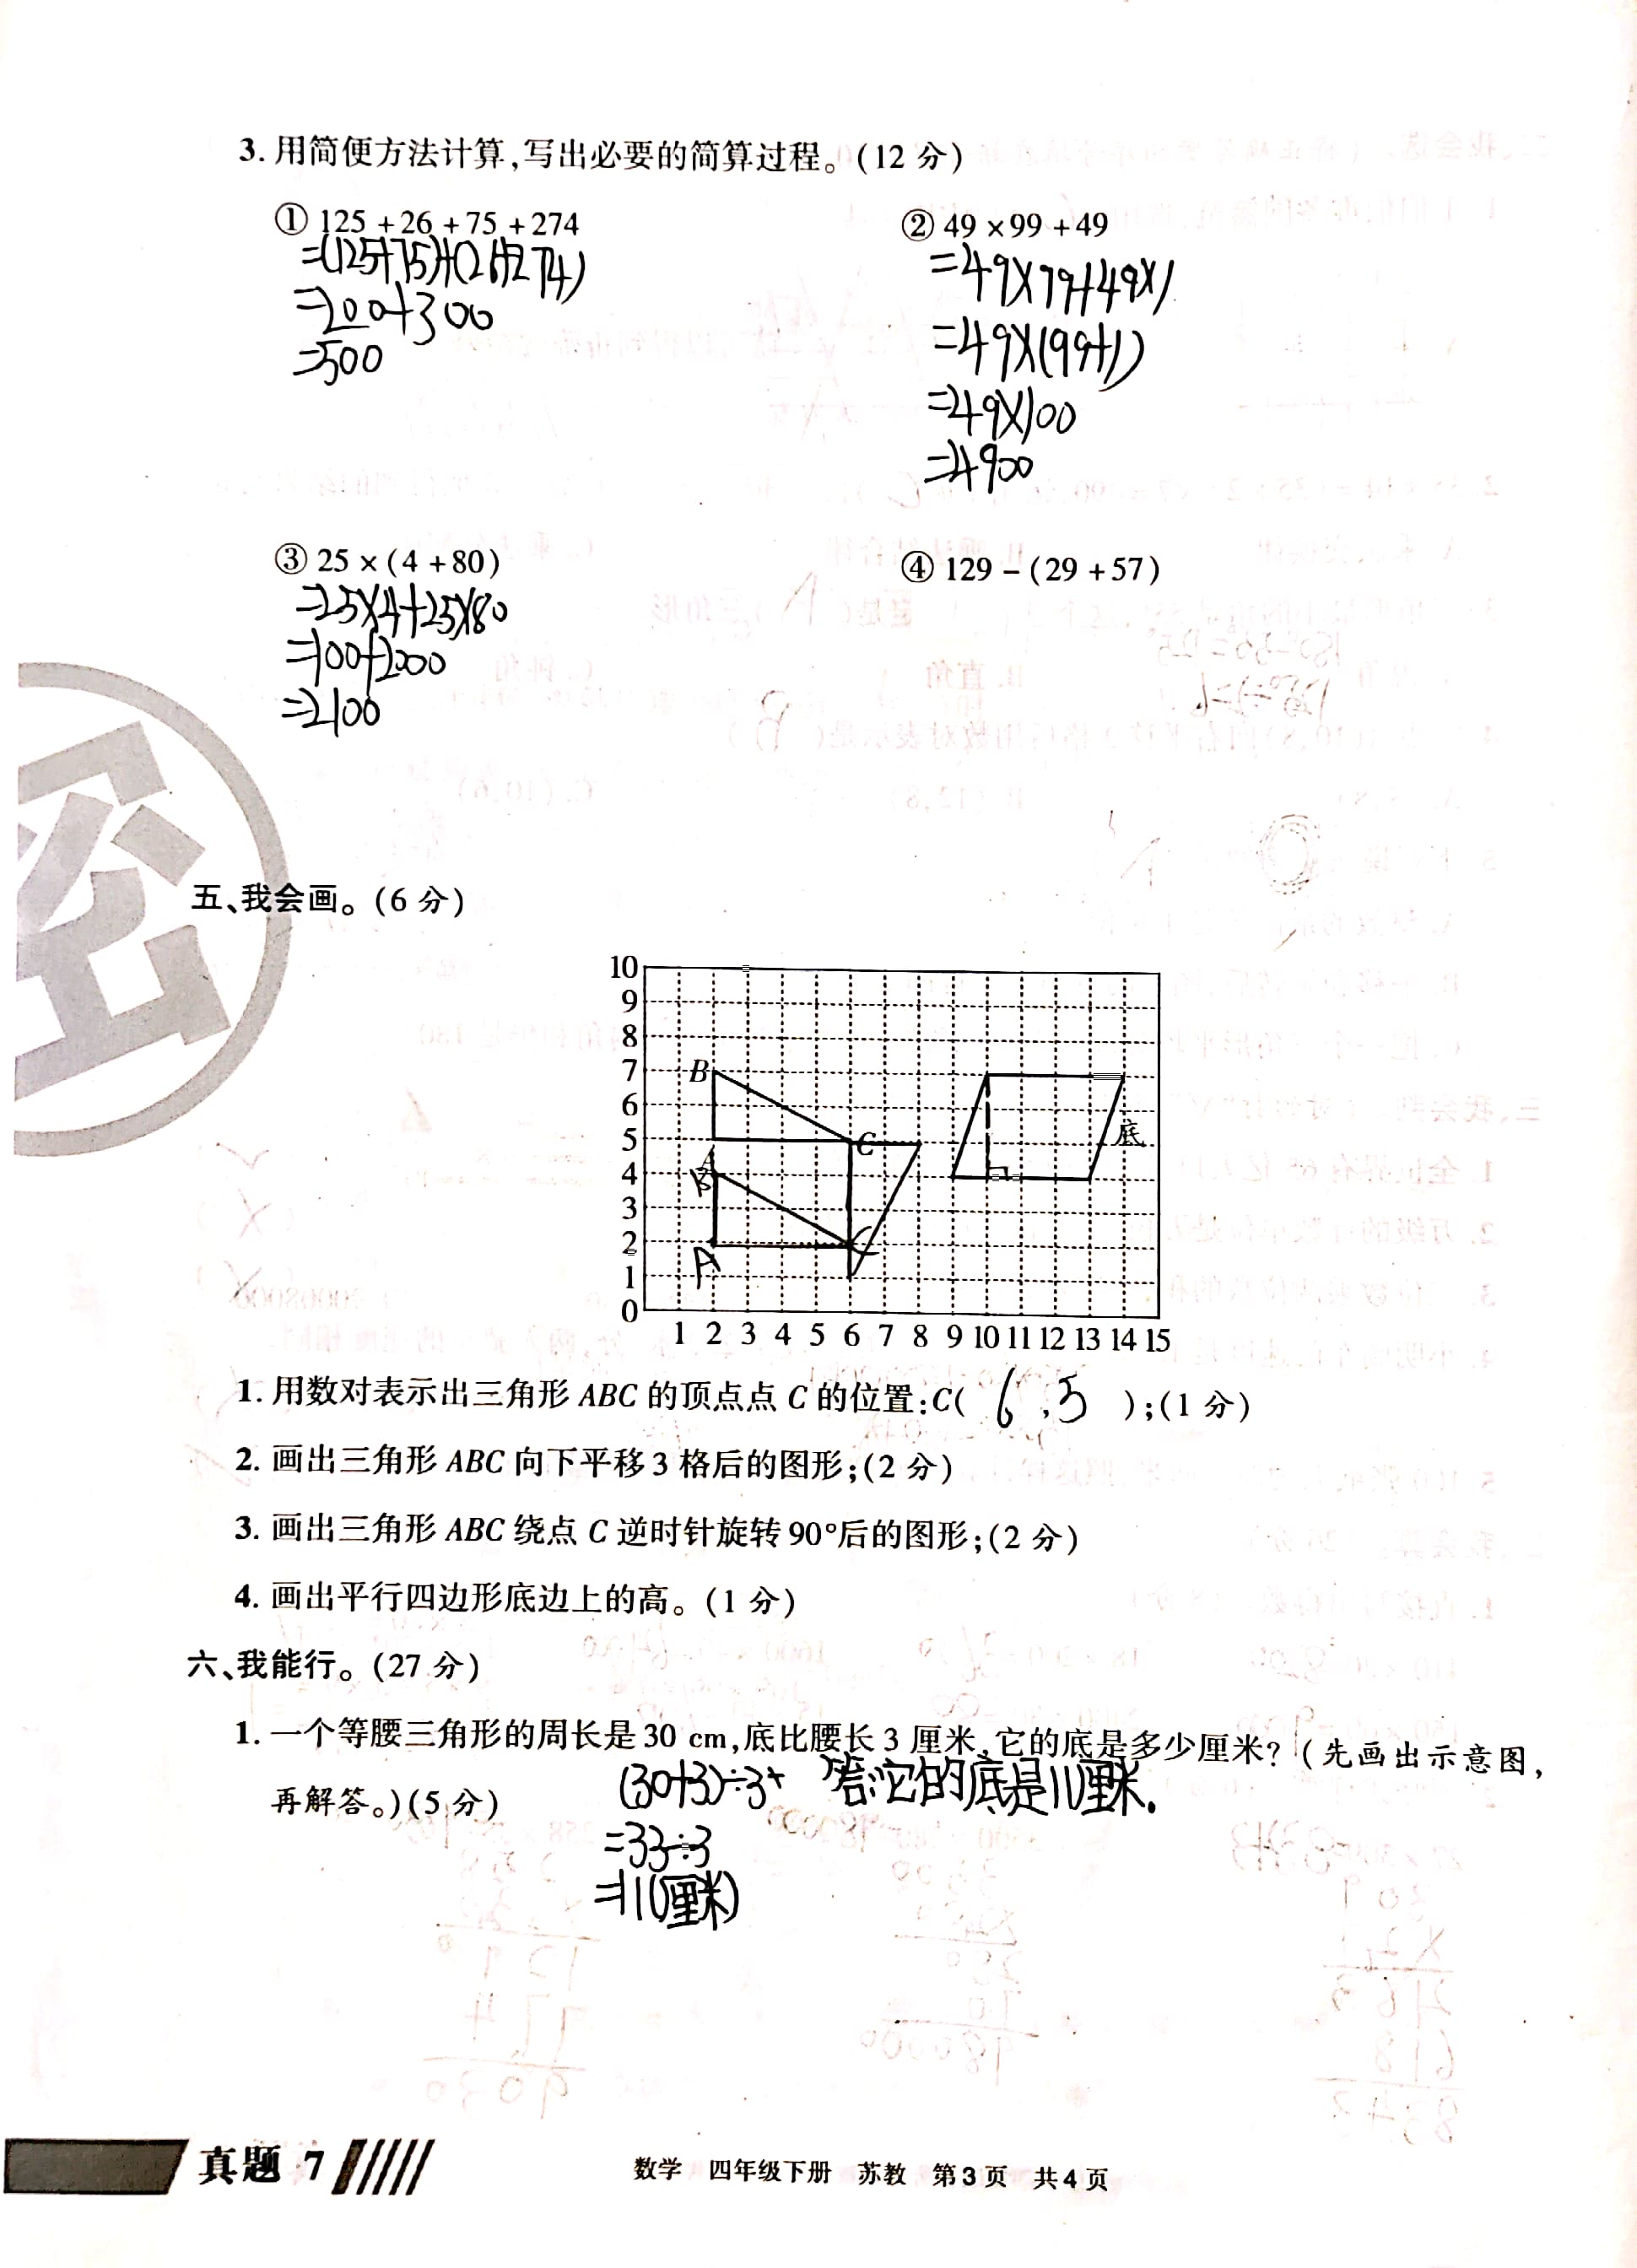 3. 用简便方法计算,写出必要的简算过程。(12 分)
① 125 + 26 + 75 + 274
② 49 × 99 + 49
=(125+75)+(26+274)
=49×99+49×1
=200+300
=49×(99+1)
=500
=49×100
=4900
③ 25 × (4 + 80)
④ 129 − (29 + 57)
=25×4+25×80
=100+2000
=2100
密
五、我会画。(6 分)
10
9
8
7
6
5
4
3
2
1
0
B
C
A
B
A
C
底
1 2 3 4 5 6 7 8 9 10 11 12 13 14 15
1. 用数对表示出三角形 ABC 的顶点点 C 的位置:C( 6 , 5 );(1 分)
2. 画出三角形 ABC 向下平移 3 格后的图形;(2 分)
3. 画出三角形 ABC 绕点 C 逆时针旋转 90°后的图形;(2 分)
4. 画出平行四边形底边上的高。(1 分)
六、我能行。(27 分)
1. 一个等腰三角形的周长是 30 cm,底比腰长 3 厘米,它的底是多少厘米?(先画出示意图,
再解答。)(5 分)
(30+3)÷3 答:它的底是11厘米.
=33÷3
=11(厘米)
真题 7
数学 四年级下册 苏教 第 3 页 共 4 页